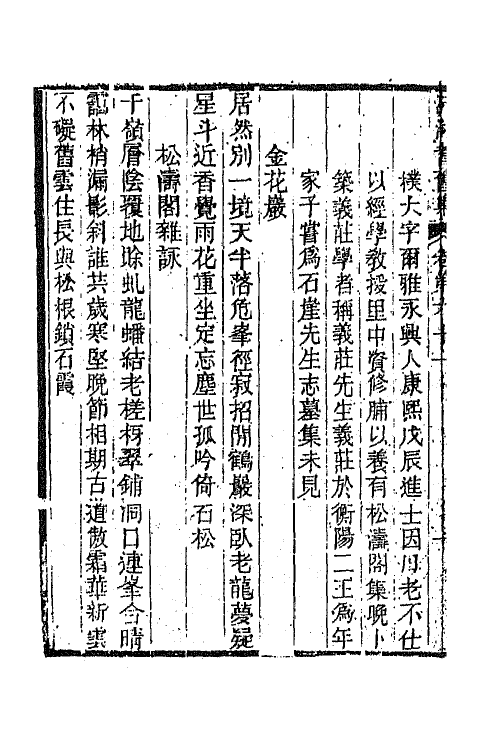 樸大字爾雅永興人康熙戊辰進士因母老不仕
以經學教授里中資修脯以養有松濤閣集晚卜
築義莊學者稱義莊先生義莊於衡陽二王爲年
家子嘗爲石崖先生志墓集未見
金花巖
居然別一境天半落危峯徑寂招閒鶴巖深臥老龍夢疑
星斗近香覺雨花重坐定忘塵世孤吟倚石松
松濤閣雜詠
千嶺層陰覆地賖虬龍蟠結老槎枒翠鋪洞口連峯合晴
靄林梢漏影斜誰共歲寒堅晚節相期古道傲霜華新雲
不礙舊雲住長與松根鎖石霞